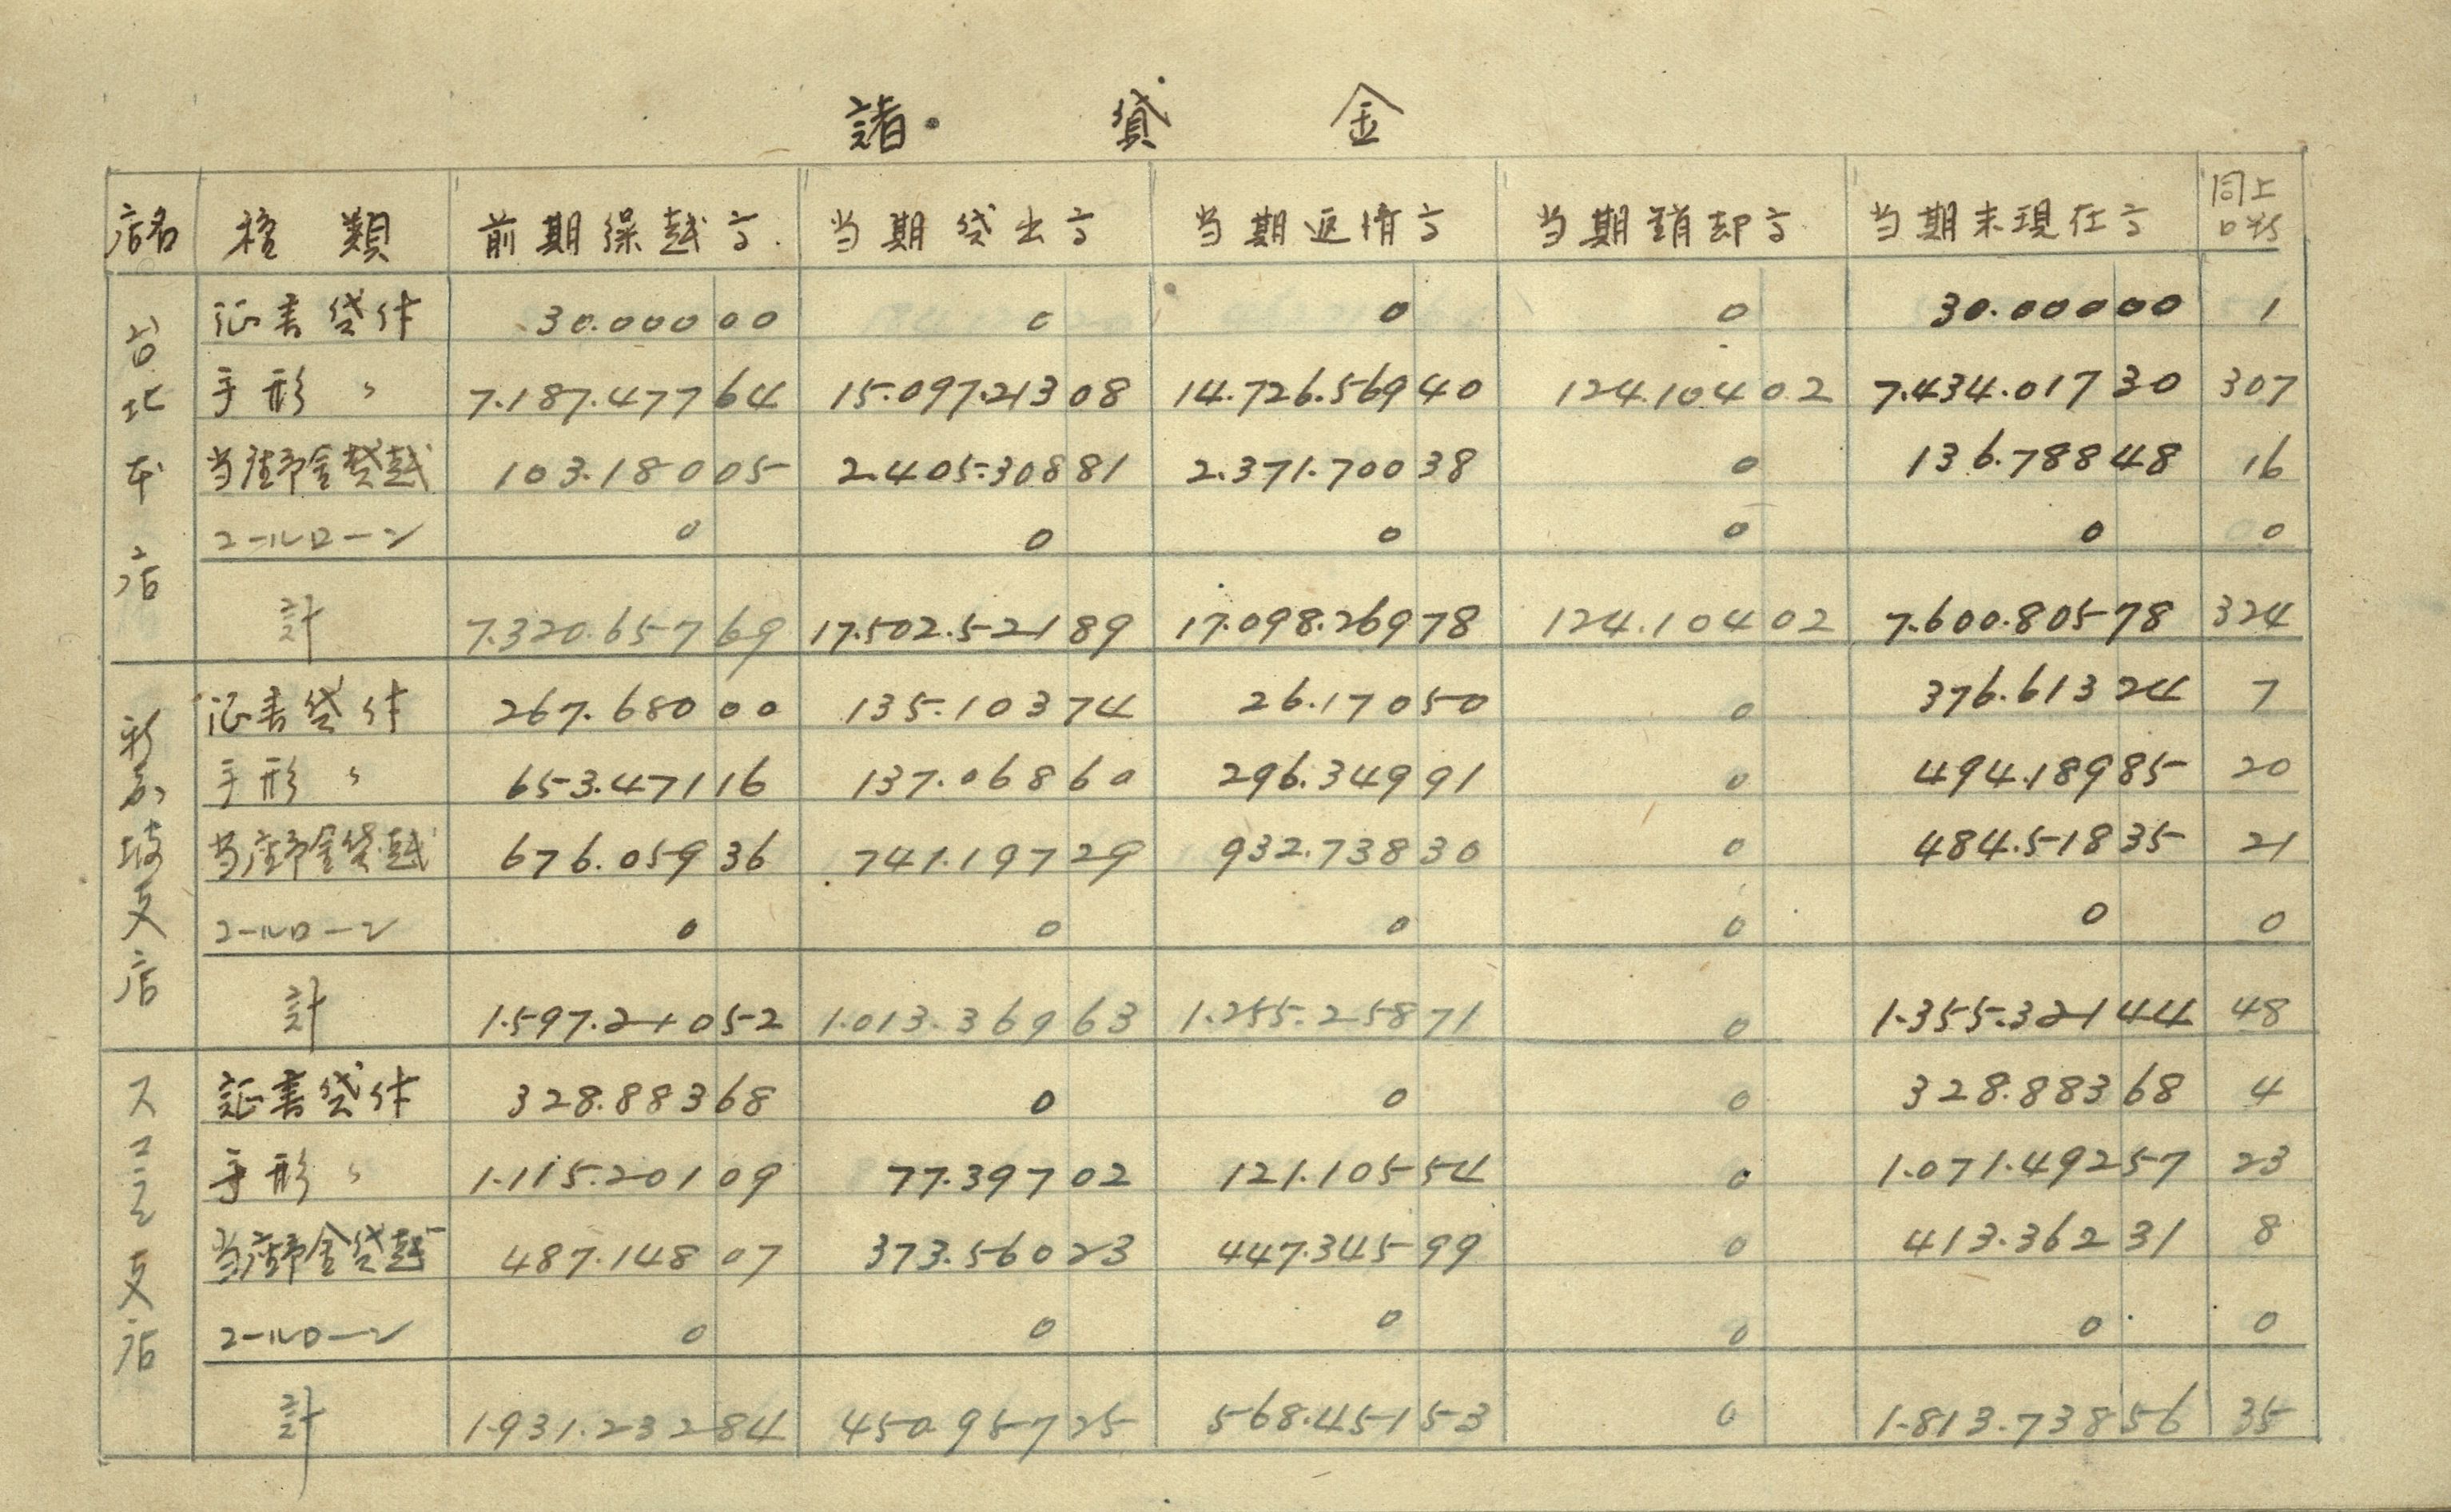 諸 貸 金
店名 種類 前期繰越高 当期貸出高 当期返済高 当期銷却高 当期末現在高 同上口数
台北本店
証書貸付 30.000 00 0 0 0 30.000 00 1
手形〃 7.187.477 64 15.097.213 08 14.726.569 40 124.104 02 7.434.017 30 307
当座預金貸越 103.180 05 2.405.308 81 2.371.700 38 0 136.788 48 16
コールローン 0 0 0 0 0 0
計 7.320.657 69 17.502.521 89 17.098.269 78 124.104 02 7.600.805 78 324
新嘉坡支店
証書貸付 267.680 00 135.103 74 26.170 50 0 376.613 24 7
手形〃 653.471 16 137.068 60 296.349 91 0 494.189 85 20
当座預金貸越 676.059 36 741.197 29 932.738 30 0 484.518 35 21
コールローン 0 0 0 0 0 0
計 1.597.210 52 1.013.369 63 1.255.258 71 0 1.355.321 44 48
スマラン支店
証書貸付 328.883 68 0 0 0 328.883 68 4
手形〃 1.115.201 09 77.397 02 121.105 54 0 1.071.492 57 23
当座預金貸越 487.148 07 373.560 23 447.345 99 0 413.362 31 8
コールローン 0 0 0 0 0 0
計 1.931.232 84 450.957 25 568.451 53 0 1.813.738 56 35